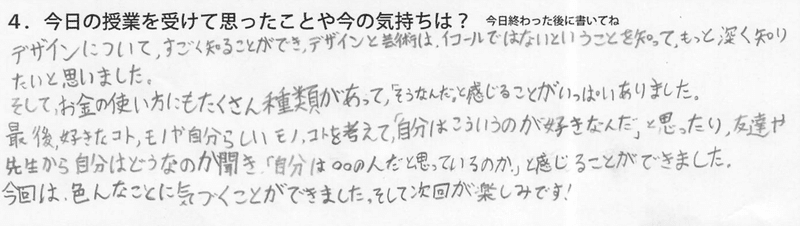 4. 今日の授業を受けて思ったことや今の気持ちは？ 今日終わった後に書いてね
デザインについて,すごく知ることができ,デザインと芸術は,イコールではないということを知って,もっと,深く知り
たいと思いました。
そして,お金の使い方にもたくさん種類があって,「そうなんだ」と感じることがいっぱいありました。
最後,好きなコト,モノや自分らしいモノ,コトを考えて,「自分はこういうのが好きなんだ」と思ったり,友達や
先生から自分はどうなのか聞き,「自分は○○の人だと思っているのか」と感じることができました。
今回は、色んなことに気づくことができました。そして次回が楽しみです!